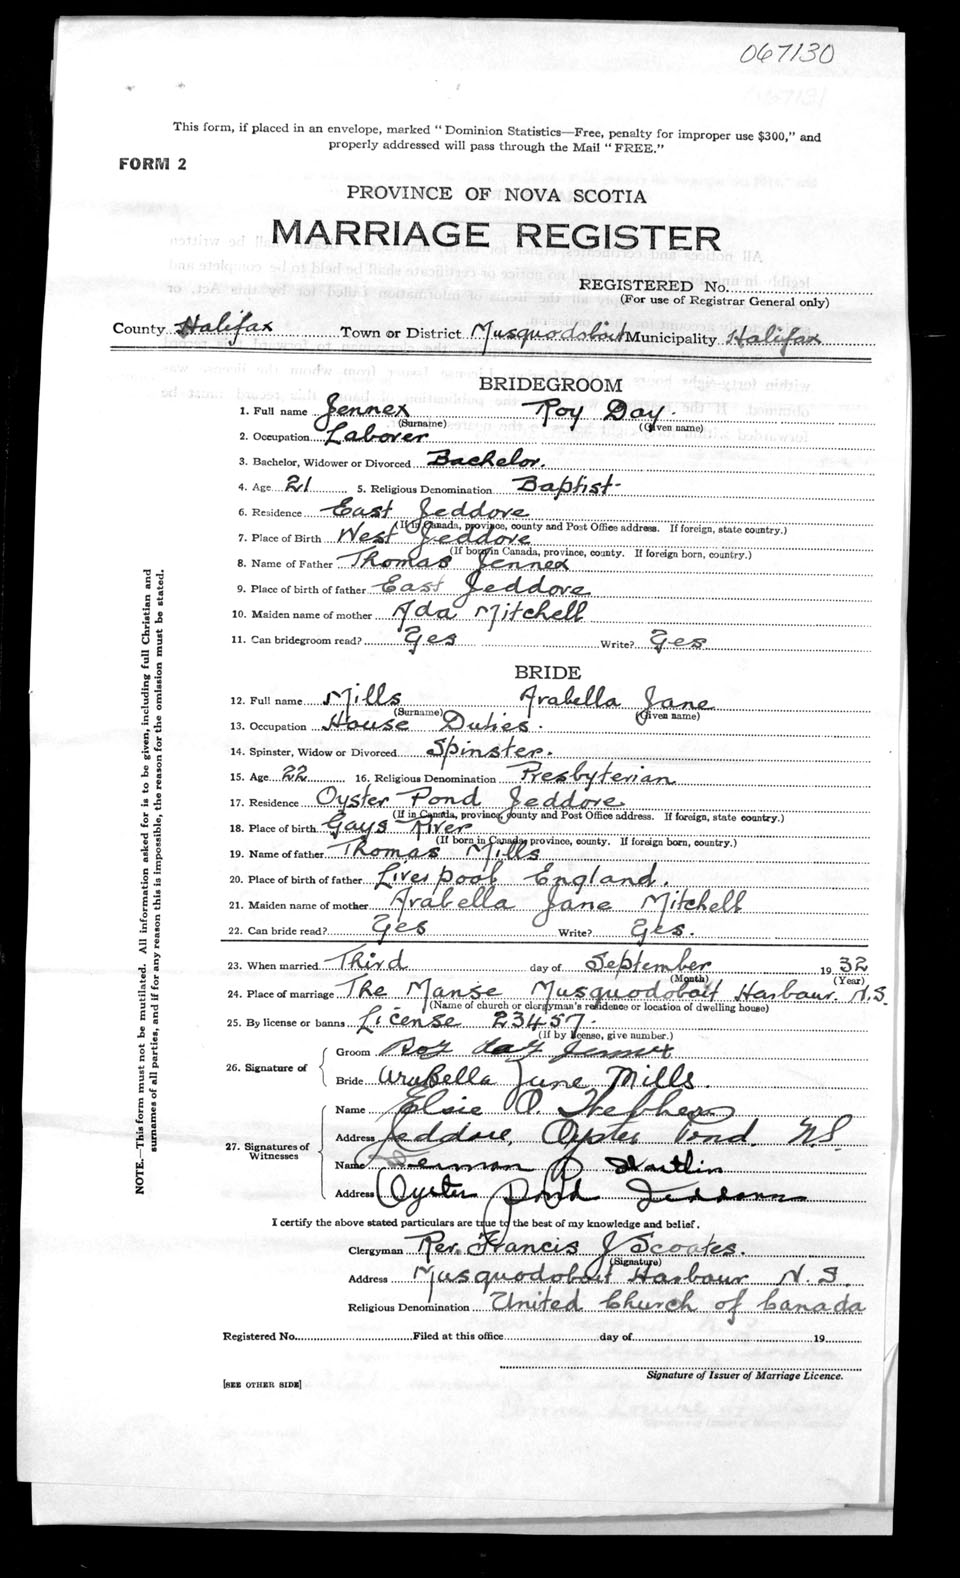 067130
This form, if placed in an envelope, marked "Dominion Statistics—Free, penalty for improper use $300," and
properly addressed will pass through the Mail "FREE."
FORM 2
PROVINCE OF NOVA SCOTIA
MARRIAGE REGISTER
REGISTERED No.
(For use of Registrar General only)
County Halifax Town or District Musquodoboit Municipality Halifax
BRIDEGROOM
1. Full name Jennex Roy Day.
(Surname) (Given name)
2. Occupation Laborer
3. Bachelor, Widower or Divorced Bachelor.
4. Age 21 5. Religious Denomination Baptist
6. Residence East Jeddore
(If in Canada, province, county and Post Office address. If foreign, state country.)
7. Place of Birth West Jeddore
(If born in Canada, province, county. If foreign born, country.)
8. Name of Father Thomas Jennex
9. Place of birth of father East Jeddore
10. Maiden name of mother Ada Mitchell
11. Can bridegroom read? Yes Write? Yes.
BRIDE
12. Full name Mills Arabella Jane
(Surname) (Given name)
13. Occupation House Duties.
14. Spinster, Widow or Divorced Spinster.
15. Age 22 16. Religious Denomination Presbyterian
17. Residence Oyster Pond Jeddore
(If in Canada, province, county and Post Office address. If foreign, state country.)
18. Place of birth Gays River
(If born in Canada, province, county. If foreign born, country.)
19. Name of father Thomas Mills
20. Place of birth of father Liverpool England.
21. Maiden name of mother Arabella Jane Mitchell
22. Can bride read? Yes Write? Yes.
23. When married Third day of September 1932
(Month) (Year)
24. Place of marriage The Manse Musquodoboit Harbour. N.S.
(Name of church or clergyman's residence or location of dwelling house)
25. By license or banns License 23457.
(If by license, give number.)
26. Signature of
Groom Roy day Jennex
Bride Arabella Jane Mills.
27. Signatures of Witnesses
Name Elsie P.
Address Jeddore, Oyster Pond. N.S.
Name Herman P
Address Oyster Pond Jeddore
I certify the above stated particulars are true to the best of my knowledge and belief.
Clergyman Rev. Francis J Scoates.
(Signature)
Address Musquodoboit Harbour N. S.
Religious Denomination United Church of Canada
Registered No. Filed at this office day of 19
Signature of Issuer of Marriage Licence.
[SEE OTHER SIDE]
NOTE.—This form must not be mutilated. All information asked for is to be given, including full Christian and
surnames of all parties, and if for any reason this is impossible, the reason for the omission must be stated.